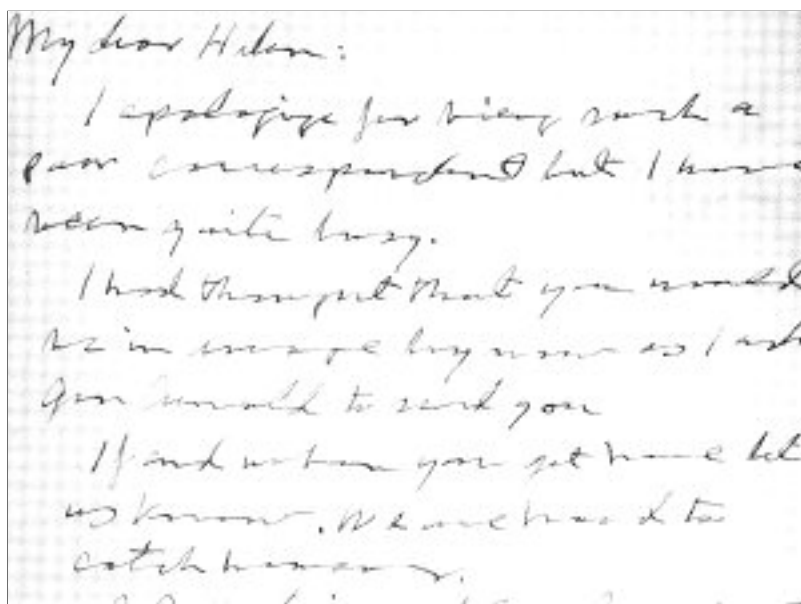 My dear Helen:
I apologize for being such a
poor correspondent but I have
been quite busy.
I had thought that you would
be in by now as I
to send you
If and when you get home let
us know. We are hard to
catch